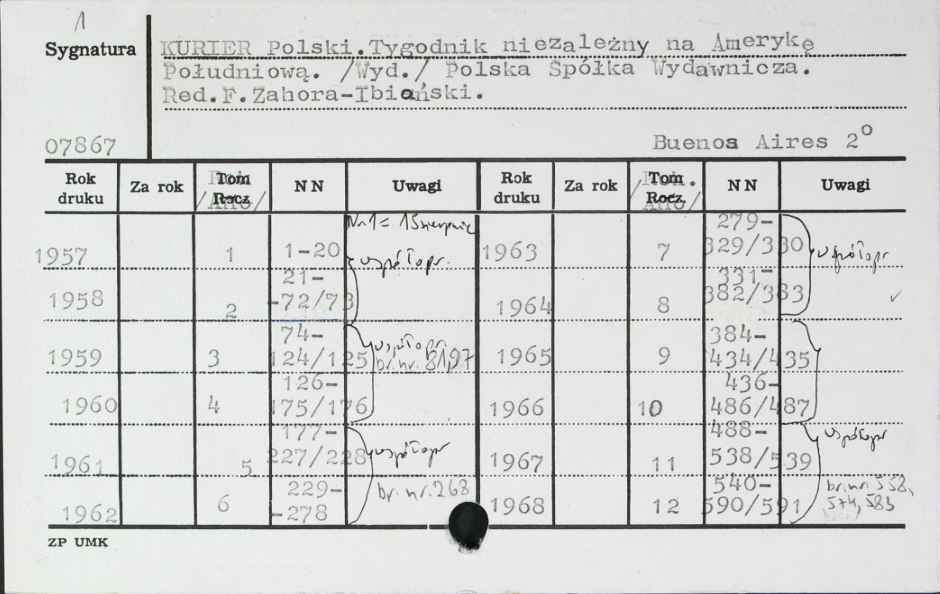 1
Sygnatura
KURIER Polski.Tygodnik niezależny na Amerykę
Południową. /Wyd./ Polska Spółka Wydawnicza.
Red.F.Zahora-Ibiański.
07867
Buenos Aires 2º
Rok druku Za rok Tom Rocz. NN Uwagi Rok druku Za rok Tom Rocz. NN Uwagi
/Ano/ /Rok. Ano/
Nr 1 = 1 Sierpnia
1957 1 1-20 współopr. 1963 7 279-329/330 współopr
1958 2 21--72/73 1964 8 331-382/383 ✓
1959 3 74-124/125 współopr. br. nr. 81,97 1965 9 384-434/435
1960 4 126-175/176 1966 10 436-486/487
1961 5 177-227/228 współopr 1967 11 488-538/539 współopr
1962 6 229--278 br. nr. 268 1968 12 540-590/591 br. nr. 558, 574, 583
ZP UMK